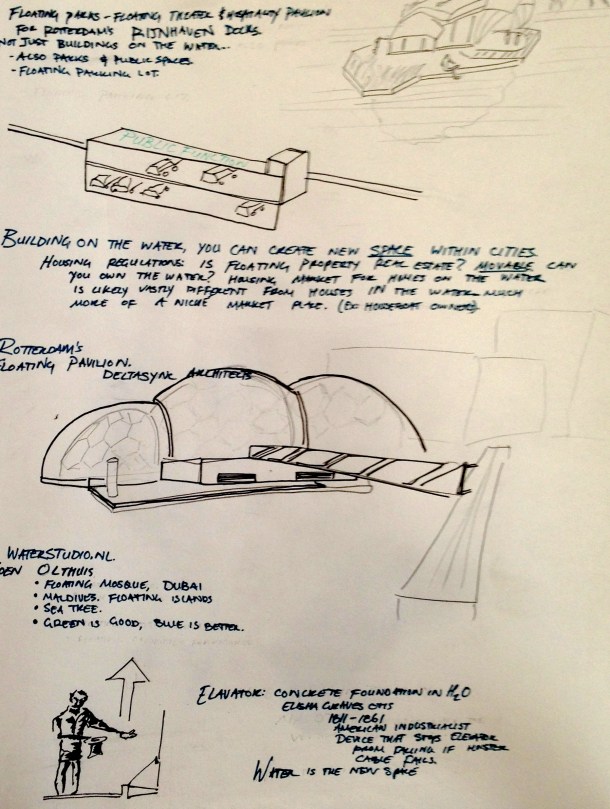 FLOATING PARKS - FLOATING THEATER & HOSPITALITY PAVILION
FOR ROTTERDAM'S RIJNHAVEN DOCKS.
NOT JUST BUILDINGS ON THE WATER...
- ALSO PARKS & PUBLIC SPACES
- FLOATING PARKING LOT.
PUBLIC FUNCTION
BUILDING ON THE WATER, YOU CAN CREATE NEW SPACE WITHIN CITIES.
HOUSING REGULATIONS: IS FLOATING PROPERTY REAL ESTATE? MOVABLE CAN
YOU OWN THE WATER? HOUSING MARKET FOR HOMES ON THE WATER
IS LIKELY VASTLY DIFFERENT FROM HOUSES IN THE WATER MUCH
MORE OF A NICHE MARKET PLACE. (EX: HOUSEBOAT OWNERS).
ROTTERDAM'S
FLOATING PAVILION.
DELTASYNC ARCHITECTS
WATERSTUDIO.NL.
OEN OLTHUIS
• FLOATING MOSQUE, DUBAI
• MALDIVES. FLOATING ISLANDS
• SEA TREE.
• GREEN IS GOOD, BLUE IS BETTER.
ELAVATOR: CONCRETE FOUNDATION IN H2O
ELISHA GRAVES OTIS
1811-1861
AMERICAN INDUSTRIALIST
DEVICE THAT STOPS ELEVATOR
FROM FALLING IF HOISTER
CABLE FAILS.
WATER IS THE NEW SPACE